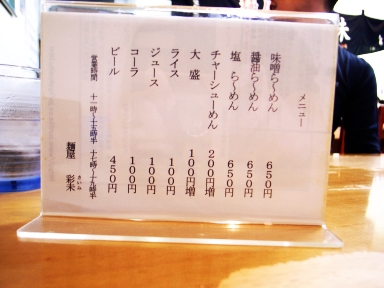 メニュー
味噌ら〜めん 650円
醤油ら〜めん 650円
塩 ら〜めん 650円
チャーシューめん 200円増
大 盛 100円増
ライス 100円
ジュース 100円
コーラ 100円
ビール 450円
営業時間 十一時〜十五時半 十七時〜十九時半
麺屋 彩未
さいみ